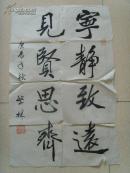 寧靜致遠
見賢思齊